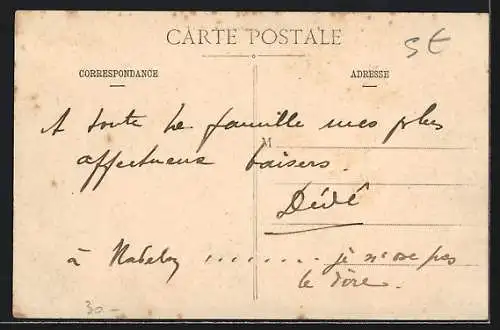 CARTE POSTALE
5€
CORRESPONDANCE
ADRESSE
A toute la famille mes plus
M
affectueux baisers.
Dédé
à ....... je n'ose pas
le dire.
30-